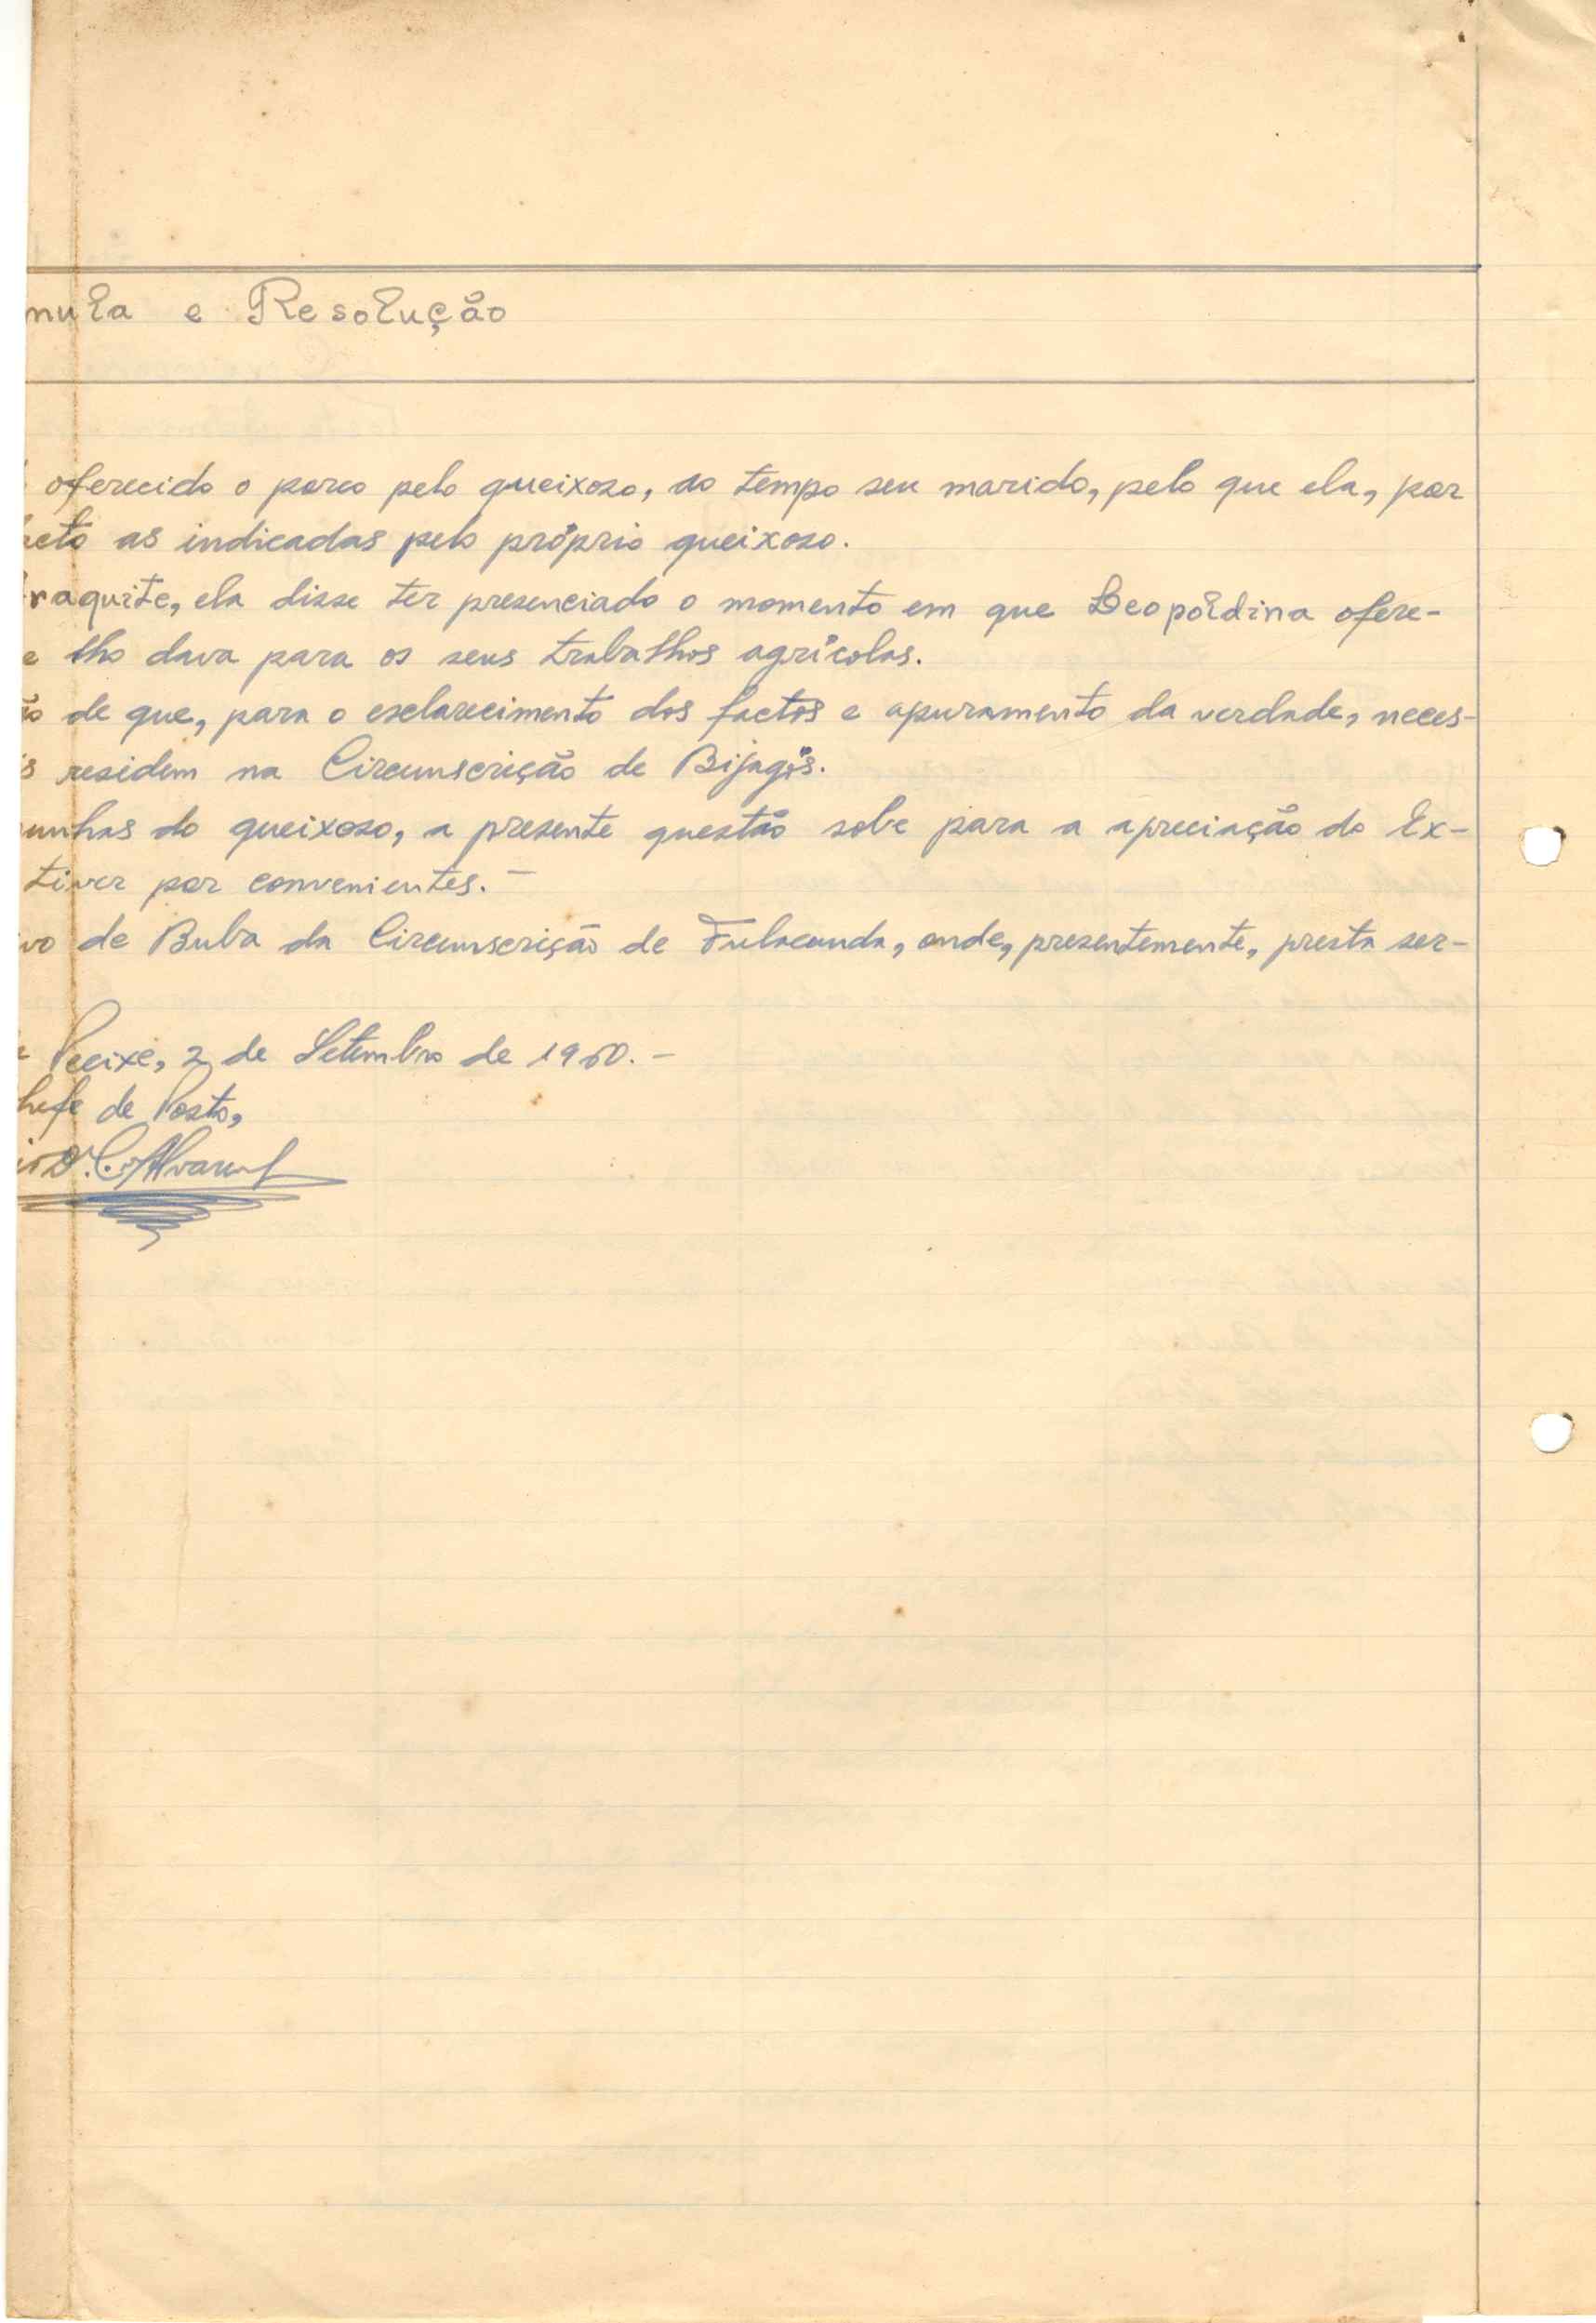 nula e Resolução
oferecido o porco pelo queixoso, ao tempo seu marido, pelo que ela, por
as indicadas pelo próprio queixoso.
raquite, ela disse ter presenciado o momento em que Leopoldina ofere-
e lho dava para os seus trabalhos agrícolas.
ão de que, para o esclarecimento dos factos e apuramento da verdade, neces-
residem na Circunscrição de Bijagós.
unhas do queixoso, a presente questão sobe para a apreciação do Ex-
tiver por convenientes.-
vo de Buba da Circunscrição de Fulacunda, onde, presentemente, presta ser-
Pecixe, 2 de Setembro de 1960.-
hefe de Posto,